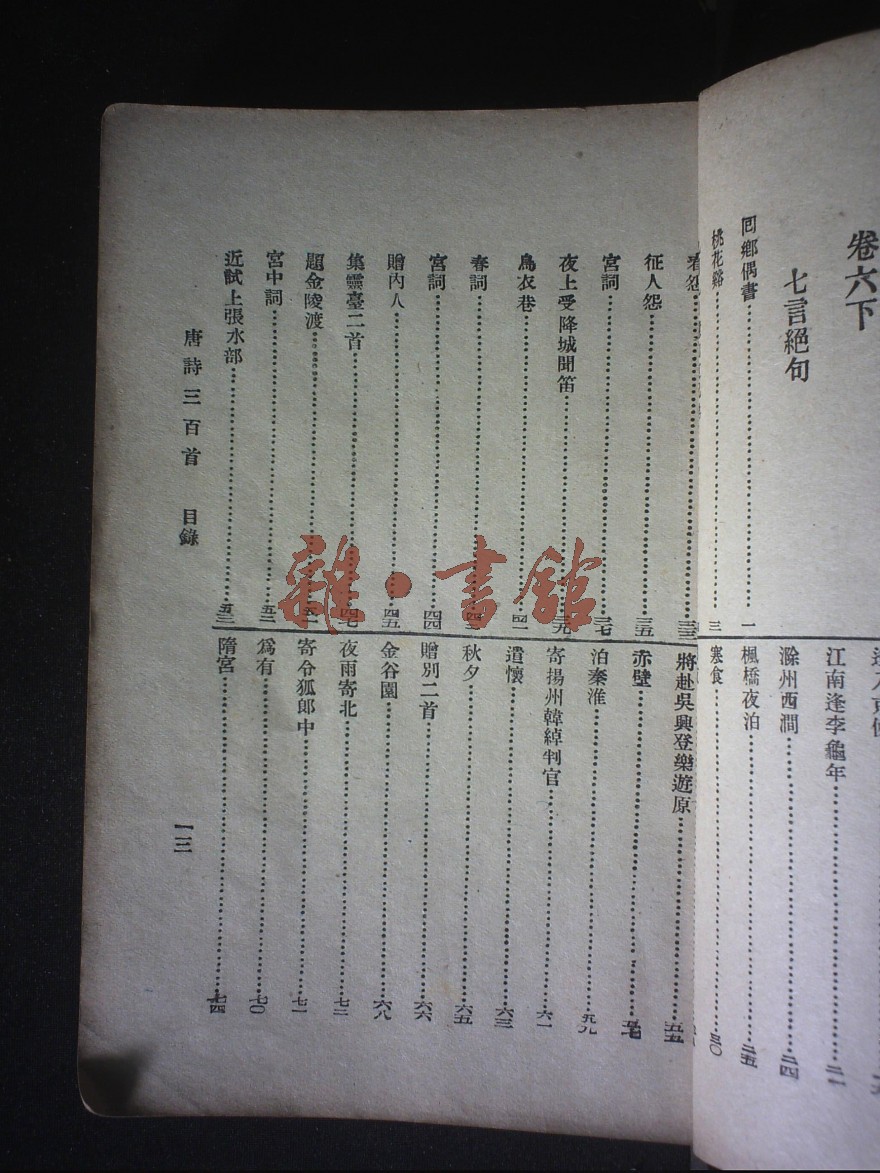 卷六下
七言絕句
回鄉偶書 一
桃花谿 三
江南逢李龜年 二一
滁州西澗 二四
楓橋夜泊 二五
寒食 三〇
春怨 三三
征人怨 三五
宮詞 三七
夜上受降城聞笛 三九
烏衣巷 四一
春詞 四三
宮詞 四四
贈內人 四五
集靈臺二首 四七
題金陵渡 五一
宮中詞 五二
近試上張水部 五三
將赴吳興登樂遊原 五五
赤壁 五七
泊秦淮 五九
寄揚州韓綽判官 六一
遣懷 六三
秋夕 六五
贈別二首 六六
金谷園 六八
夜雨寄北 七二
寄令狐郎中 七一
為有 七〇
隋宮 七四
唐詩三百首 目錄
一三
雜·書館